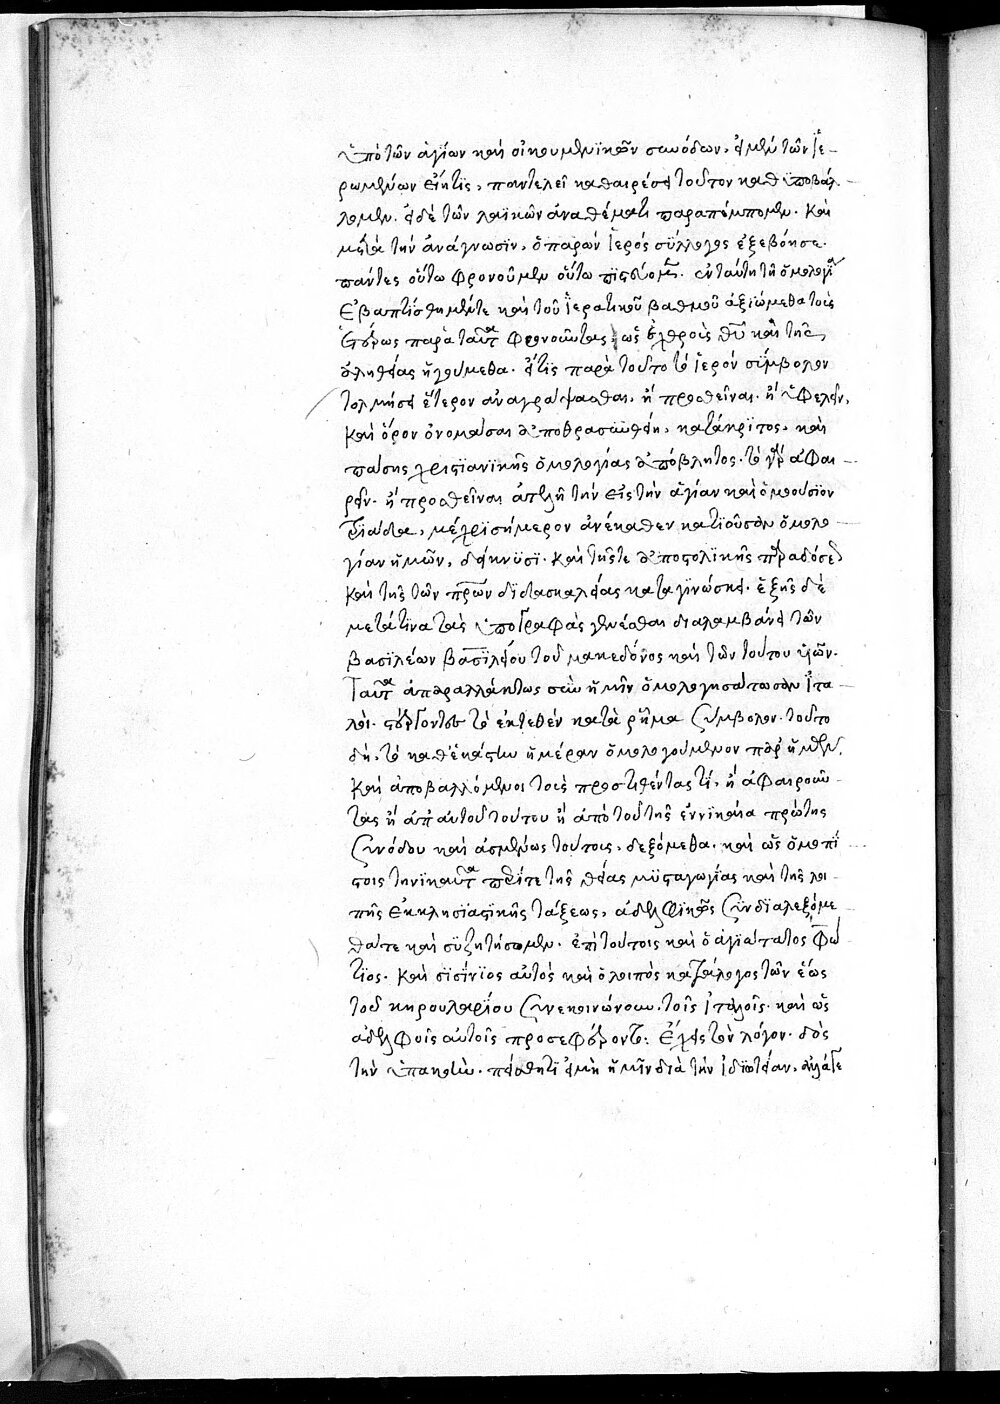 ὑπὸ τῶν ἁγίων καὶ οἰκουμενϊκῶν συνόδων. εἰ μὲν τῶν ἱε-
ρωμένων εἴη τὶς, παντελεῖ καθαιρέσει τοῦτον καθϋποβάλ-
λομεν. εἰ δὲ τῶν λαϊκῶν ἀναθέματι παραπέμπομεν. Καὶ
μετὰ τὴν ἀνάγνωσϊν, ὁ παρὼν ἱερὸς σύλλογος ἐξεβόησε.
πάντες οὕτω φρονοῦμεν οὕτω πϊστεύομεν. ἐν ταύτη τῆ ὁμολογία
ἐβαπτίσθημέν τε καὶ τοῦ ἱερατικοῦ βαθμοῦ ἀξιώμεθα τοὺς
ἑτέρως παρὰ ταῦτα φρονοῦντας ὡς ἐχθροὺς θῦ καὶ τῆς
ἀληθείας ἡγούμεθα. εἴ τις παρὰ τοῦτο τὸ ἱερὸν σύμβολον
τολμήσει ἕτερον ἀναγράψασθαι, ἢ προσθεῖναι. ἢ ὑφελεῖν,
καὶ ὅρον ὀνομάσαι ἀποθρασυνθείη, κατάκρϊτος, καὶ
πάσης χριστϊανϊκῆς ὁμολογίας ἀπόβλητος. τὸ γὰρ ἀφαι-
ρεῖν. ἢ προσθεῖναι ἀτελῆ τὴν εἰς τὴν ἁγίαν καὶ ὁμοούσϊον
τριάδα, μέχρϊ σήμερον ἀνέκαθεν κατϊοῦσαν ὁμολο-
γίαν ἡμῶν, δείκνϋσϊ. καὶ τῆς τε ἀποστολϊκῆς παραδόσεως
καὶ τῆς τῶν πρων διδασκαλίας καταγϊνώσκει. ἑξῆς δὲ
μετά τινα τὰς ὑπογραφὰς γενέσθαι διαλαμβάνει τῶν
βασϊλέων βασϊλείου τοῦ μακεδόνος καὶ τῶν τούτου υἱῶν.
Ταῦτα ἀπαραλλάκτως σὺν ἡμῖν ὁμολογησάτωσαν ἰτα-
λοί. στέργοντες τὸ ἐκτεθὲν κατὰ ρῆμα σύμβολον. τοῦτο
δὴ, τὸ καθ' ἑκάστην ἡμέραν ὁμολογούμενον παρ' ἡμῶν.
καὶ ἀποβαλλόμενοι τοὺς προστιθέντας τὶ, ἢ ἀφαιροῦν-
τας ἢ ἀπ' αὐτοῦ τούτου ἢ ἀπὸ τοῦ τῆς ἐν νϊκαία πρώτης
συνόδου καὶ ἀσμένως τούτοις, δεξόμεθα. καὶ ὡς ὁμοπί-
στοις τηνϊκαῦτα περί τε τῆς θείας μϋσταγωγίας καὶ τῆς λοι-
πῆς ἐκκλησϊαστϊκῆς τάξεως, ἀδελφϊκῶς συνδϊαλεξόμε
θά τε καὶ σϋζητήσομεν. ἐπὶ τούτοις καὶ ὁ ἁγϊώτατος φώ
τϊος. καὶ σϊσίνϊος αὐτὸς καὶ ὁ λοιπὸς κατάλογος τῶν ἕως
τοῦ κηρουλαρίου συνεκοινώνουν τοῖς ἰταλοῖς. καὶ ὡς
ἀδελφοῖς αὐτοῖς προσεφέροντο: ἔχεις τὸν λόγον. δὸς
τὴν ὑπακοὴν. πείσθητϊ εἰ μὴ ἡμῖν διὰ τὴν ἰδϊωτείαν, ἀλλά γε